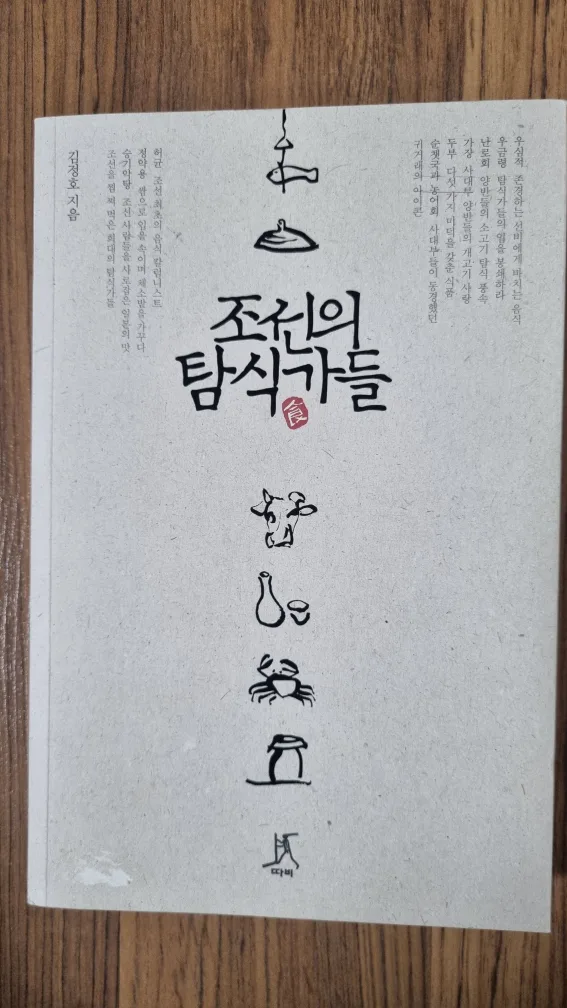 우심적 존경하는 선비에게 바치는 음식
우금령 탐식가들의 입을 봉쇄하라
난로회 양반들의 소고기 탐식 풍속
가장 사대부 양반들의 개고기 사랑
두부 다섯 가지 미덕을 갖춘 식품
순챗국과 농어회 사대부들이 동경했던
귀거래의 아이콘
조선의
탐식가들
食
허균 조선 최초의 음식 칼럼니스트
정약용 쌈으로 입을 속이며 채소밭을 가꾸다
승기악탕 조선 사람들을 사로잡은 일본의 맛
조선을 쥐락펴락한 희대의 탐식가들
김정호 지음
따비